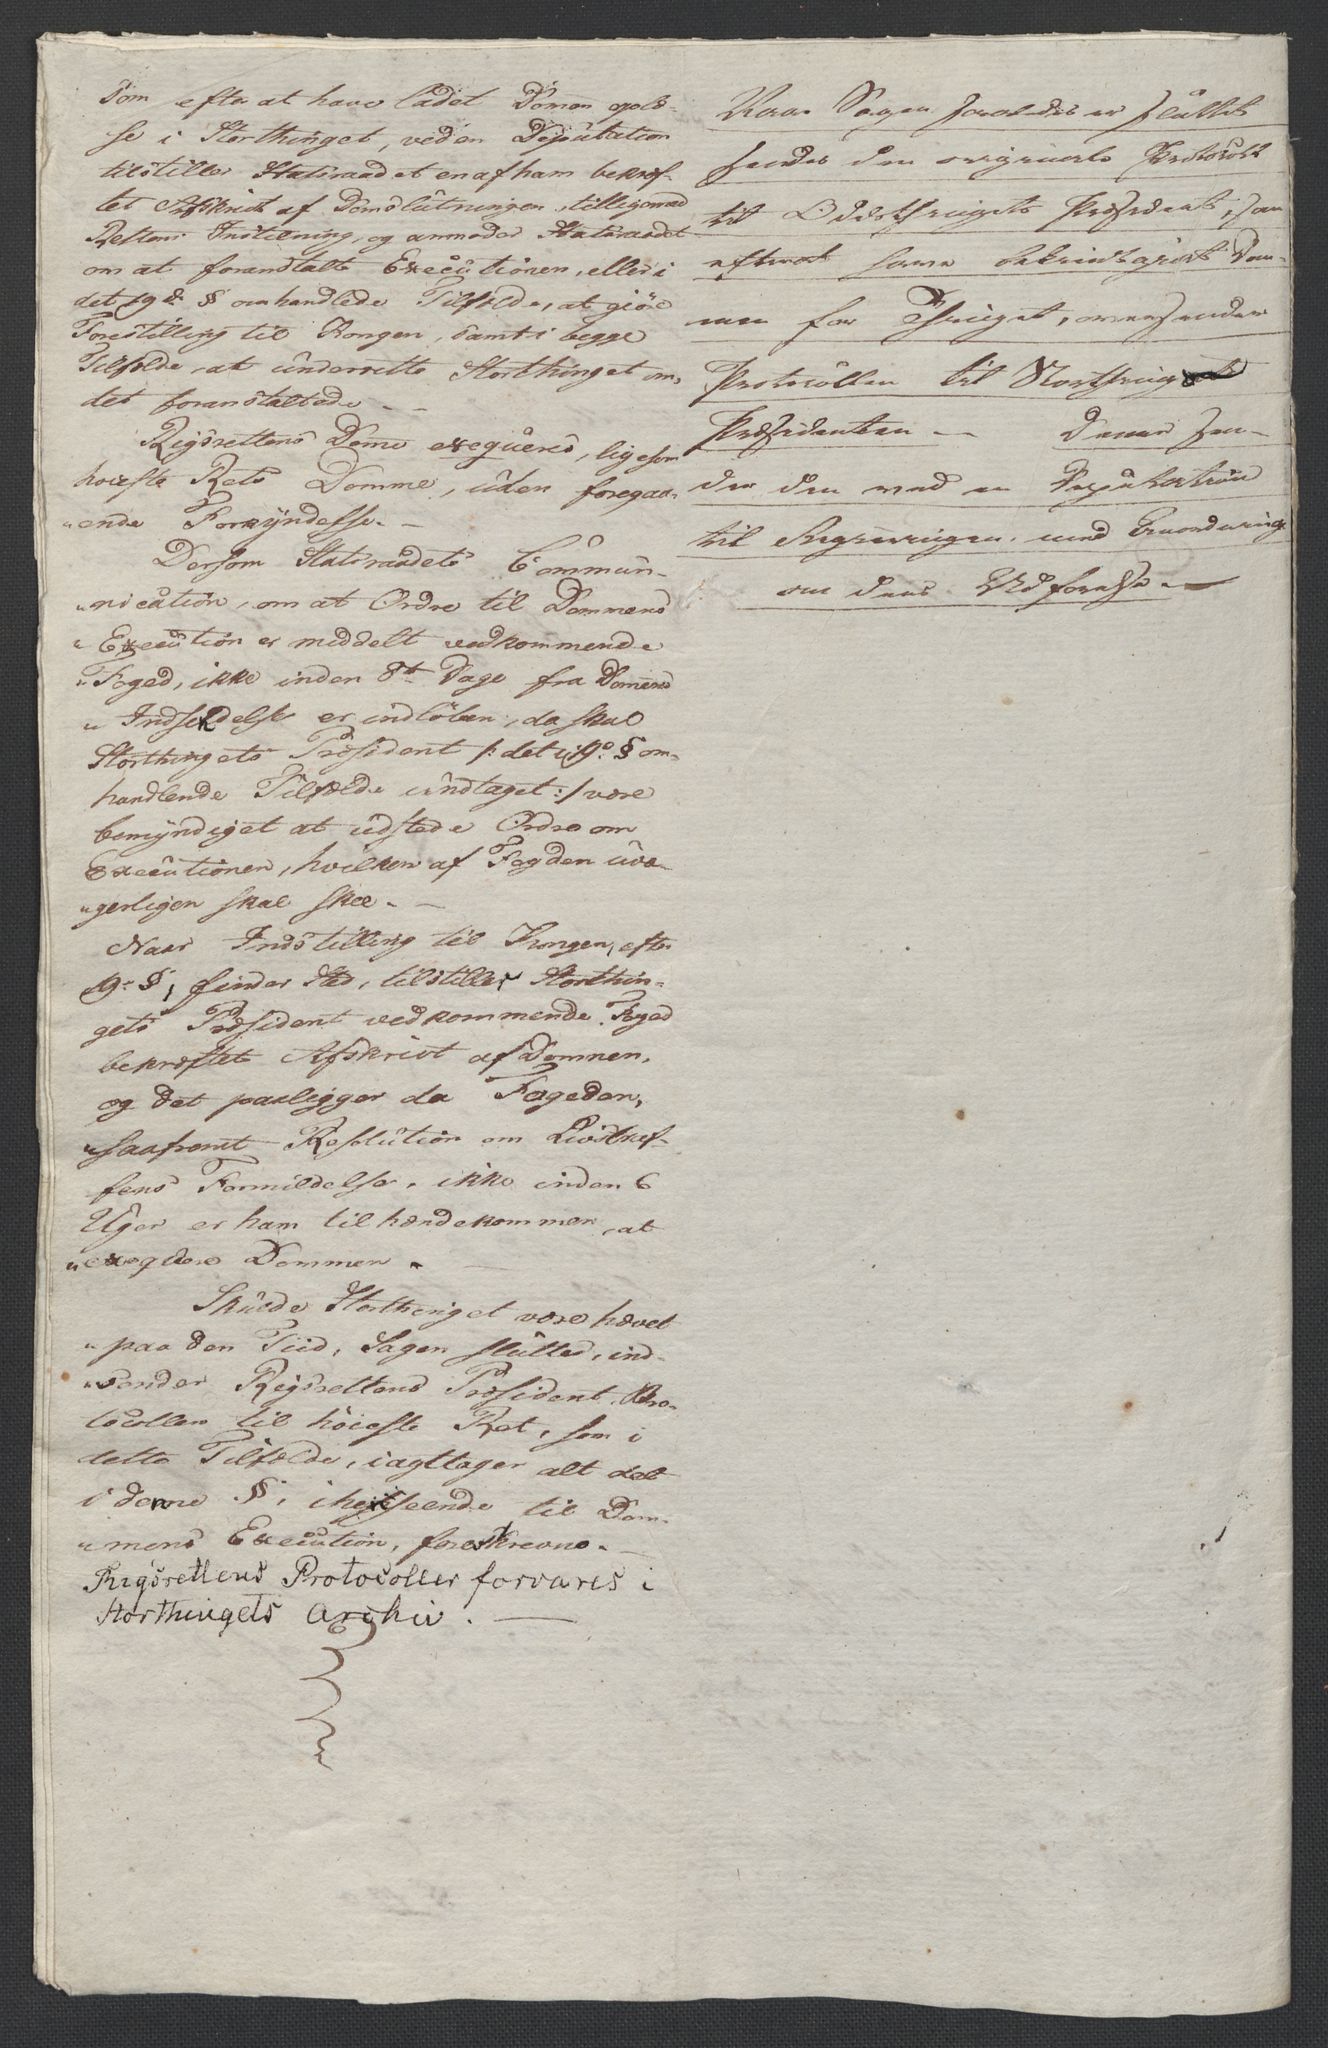 Som efter at have ladet Domen oplæ-
se i Storthinget, ved en Deputation
tilstiller Statsraadet en af ham bekræf-
tet Afskrivt af Domslutningen, tilligemed
Rettens Instilling, og anmoder Statsraadet
om at foranstalte Executionen, eller i
det 19de § omhandlede Tilfælde, at giøre
Forestilling til Kongen, samt i begge
Tilfælde, at underrette Storthinget om
det foranstaltede. —
Rigsrettens Dome exequeres, ligesom
høieste Rets Domme, uden foregaa-
„ende Forkyndelse. —
Dersom Statsraadets Commun-
„nication, om at Ordre til Dommens
„Execution er meddelt vedkommende
„Foged, ikke inden 8te Dage fra Domens
„Indsendelse er indløben, da skal
Storthingets Præsident /: det i 19de § om-
handlende Tilfælde undtaget :/ være
bemyndiget at udstede Ordre om
Executionen, hvilken af Fogden uvæ-
„gerligen skal skee. —
Naar Indstilling til Kongen, efter
19de §, finder Sted, tilstiller Storthin-
gets Præsident vedkommende Foged
bekræftet Afskrivt af Domnen,
og det paaligger da Fogeden,
„saafremt Resolution om Livstraf-
fens Formildelse, ikke inden 6
Uger er ham tilhændekommen, at
„exeqvere Dommen. —
Skulde Storthinget være hævet
„paa den Tiid, Sagen sluttes, ind-
„sender Rigsrettens Præsident Pro-
tocollen til høieste Ret, som i
dette Tilfælde, iagttager alt det
i denne §, i henseende til Dom-
„mens Execution, foreskrevne. —
Rigsrettens Protocoller forvares i
Storthingets Archiv. —
Naar Sagen saaledes er sluttet
sendes den originale Protocoll
til Odelsthingets Præsident, som
efterat have bekiendtgiort Dom-
men for Thinget, oversender
Protocollen til Storthings
Præsidenten — Denne sen-
der den med en Deputation
til Regieringen, med Anmodning
om dens Udførelse. —